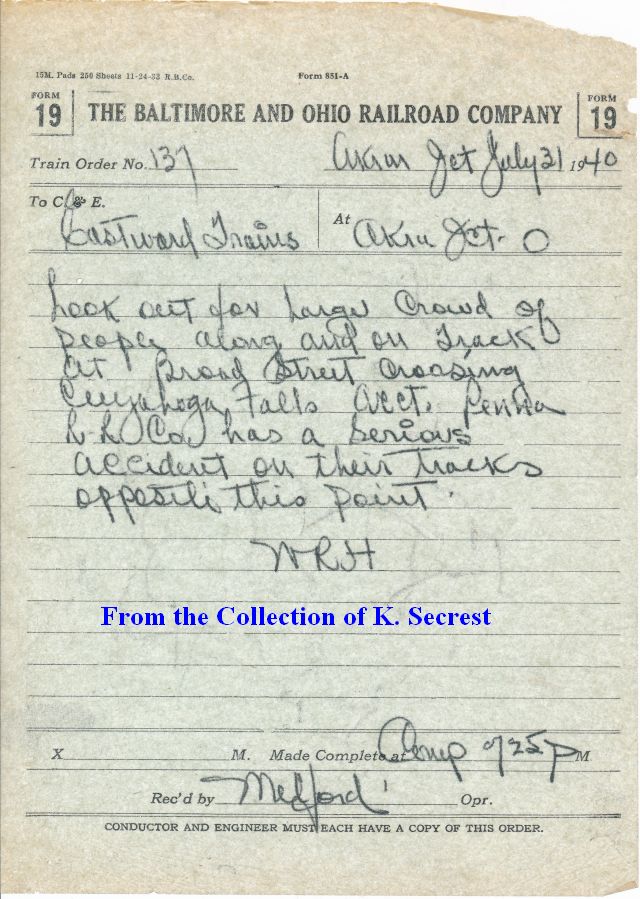 15M. Pads 250 Sheets 11-24-33 R.B.Co. Form 851-A
FORM 19 THE BALTIMORE AND OHIO RAILROAD COMPANY FORM 19
Train Order No. 137 Akron Jct July 31 1940
To C. & E. At Akron Jct. O
Eastward Trains
Look out for Large Crowd of
people along and on Track
at Broad Street Crossing
Cuyahoga Falls Acct. Penna
R.R. Co. has a Serious
accident on their Tracks
opposite this point.
WRH
From the Collection of K. Secrest
X M. Made Complete at Comp 725 P M
Rec'd by Medford Opr.
CONDUCTOR AND ENGINEER MUST EACH HAVE A COPY OF THIS ORDER.